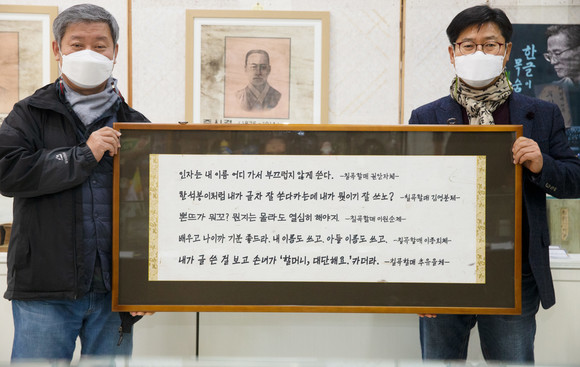 한글이
목숨
인자는 내 이름 어디 가서 부끄럽지 않게 쓴다. -칠곡할매 권안자체-
한석봉이처럼 내가 글자 잘 쓴다카는데 내가 뭣이기 잘 쓰노? -칠곡할매 김영분체-
뽄뜨가 뭐꼬? 뭔지는 몰라도 열심히 해야지. -칠곡할매 이원순체-
배우고 나이까 기분 좋드라. 내 이름도 쓰고, 아들 이름도 쓰고. -칠곡할매 이종희체-
내가 글 쓴 걸 보고 손녀가 '할머니, 대단해요.'카더라. -칠곡할매 추유을체-